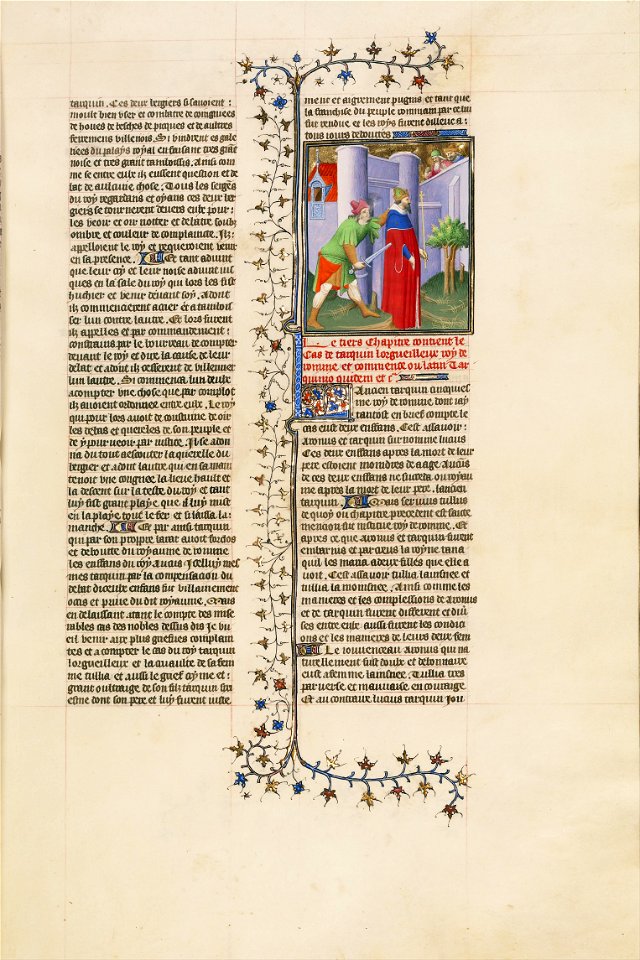 tarquin. Ces deux bergiers si savoient
moult bien user et combatre de congniees
de houes de besches de picques et de aultres
ferremens villenois. Si vindrent es gale
ries du palays royal en faisant tres grant
noise et tres grant
me se entre eulx ilz eussent question et de
bat de aulcune chose. Tous les serges
du roy regardans et oyans ces deux ber
giers se tournerent devers eulx pour
les veoir et oir noter et debatre soubz
ombre et couleur de complainte. Ilz
appelloient le roy et requeroient venir
en sa presence. Et tant advint
que leur cry et leur noise advint iusi
ques en la sale du roy qui lors les fist
huchier et venir devant soy. Adont
ilz commencerent a crier et a
ser lun contre lautre. Et lors
ilz appelles et par commandement
constrains par le bourreau de compter
devant le roy et dire la cause de leur
debat et adont ilz cesserent de villenner
lun lautre. Si commenca lun deulx
a compter une chose que par complot
ilz avoient ordonnee entre eulx. Le roy
qui pour lors avoit de coustume de oir
les debas et querelles de son peuple et
de y pourveoir par iustice. Il se adon
na du tout a escouter la querelle du
bergier et adont lautre qui en sa main
tenoit une congniee la lieve hault et
la descent sur la teste du roy et tant
luy fist grant playe que il luy mist
en la playe tout le fer et si laissa la
manche. Et par ainsi tarquin
qui par son propre barat avoit forclos
et deboute du royaume de romme
les enffans du roy Ancus icelluy mes
mes tarquin par la compensacion du
debat diceulx enfans fut villainement
occis et prive du dit royaume. Mais
en delaissant atant le compte des mise
rables cas des nobles dessus dis Je vu
eil venir aux plus griefues complain
tes et a compter le cas du roy tarquin
lorgueilleux et la avaulte de sa fem
me tullia et aussi le grief cryme et
grant oultraige de son filz tarquin sex
tus dont son pere et luy furent iuste
ment et aigrement pugnis et tant que
la franchise du peuple commun par celui
fut rendue et les roys furent dilleuc a
tous iours deboutes
Le tiers Chapitre contient le
Cas de tarquin lorgueilleux roy de
romme et commence ou latin Tar
quinio quidem et c.
Ancien tarquin iadis
me roy de romme dont iay
tantost en brief compte le
cas eust deux enffans. Cest assavoir
Aronus et tarquin surnomme lucius
Ces deux enffans apres la mort de leur
pere estoient moindres de aage. Aucuns
de ces deux enffans ne succeda ou royau
me apres la mort de leur pere lancien
tarquin. Mais servius tullius
de quoy ou chapitre precedent est faicte
mencion fut institue roy de romme. Et
apres ce que Aronus et tarquin furent
embarnis et parcreus la royne tana
quil les maria a deux filles que elle a
voit. Cest assavoir tullia lainsnee et
tullia la moinsnee. Ainsi comme les
manieres et les complessions de Aronus
et de tarquin furent different et diver
ses entre eulx aussi furent les condici
ons et les manieres de leurs deux fem
Le iouvenceau Aronus qui na
turellement fust doulx et debonnaire
eust a femme lainsnee. Tullia tres
parverse et mauvaise en couraige
Et au contraire lucius tarquin iou